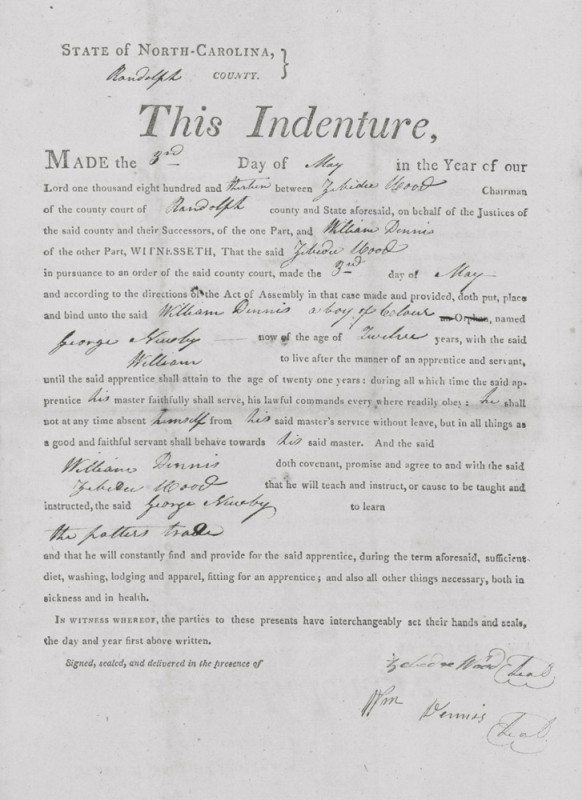 STATE OF NORTH-CAROLINA,
Randolph COUNTY.
This Indenture,
MADE the 3rd Day of May in the Year of our
Lord one thousand eight hundred and thirteen between Zebidee Wood Chairman
of the county court of Randolph county and State aforesaid, on behalf of the Justices of
the said county and their Successors, of the one Part, and William Dennis
of the other Part, WITNESSETH, That the said Zebidee Wood
in pursuance to an order of the said county court, made the 3rd day of May
and according to the directions of the Act of Assembly in that case made and provided, doth put, place
and bind unto the said William Dennis a boy of Colour an Orphan, named
George Newby now of the age of Twelve years, with the said
William to live after the manner of an apprentice and servant,
until the said apprentice shall attain to the age of twenty one years: during all which time the said ap-
prentice his master faithfully shall serve, his lawful commands every where readily obey: he shall
not at any time absent himself from his said master's service without leave, but in all things as
a good and faithful servant shall behave towards his said master. And the said
William Dennis doth covenant, promise and agree to and with the said
Zebidee Wood that he will teach and instruct, or cause to be taught and
instructed, the said George Newby to learn
the potters trade
and that he will constantly find and provide for the said apprentice, during the term aforesaid, sufficient
diet, washing, lodging and apparel, fitting for an apprentice; and also all other things necessary, both in
sickness and in health.
IN WITNESS WHEREOF, the parties to these presents have interchangeably set their hands and seals,
the day and year first above written.
Signed, sealed, and delivered in the presence of
Zebidee Wood Seal
Wm Dennis Seal